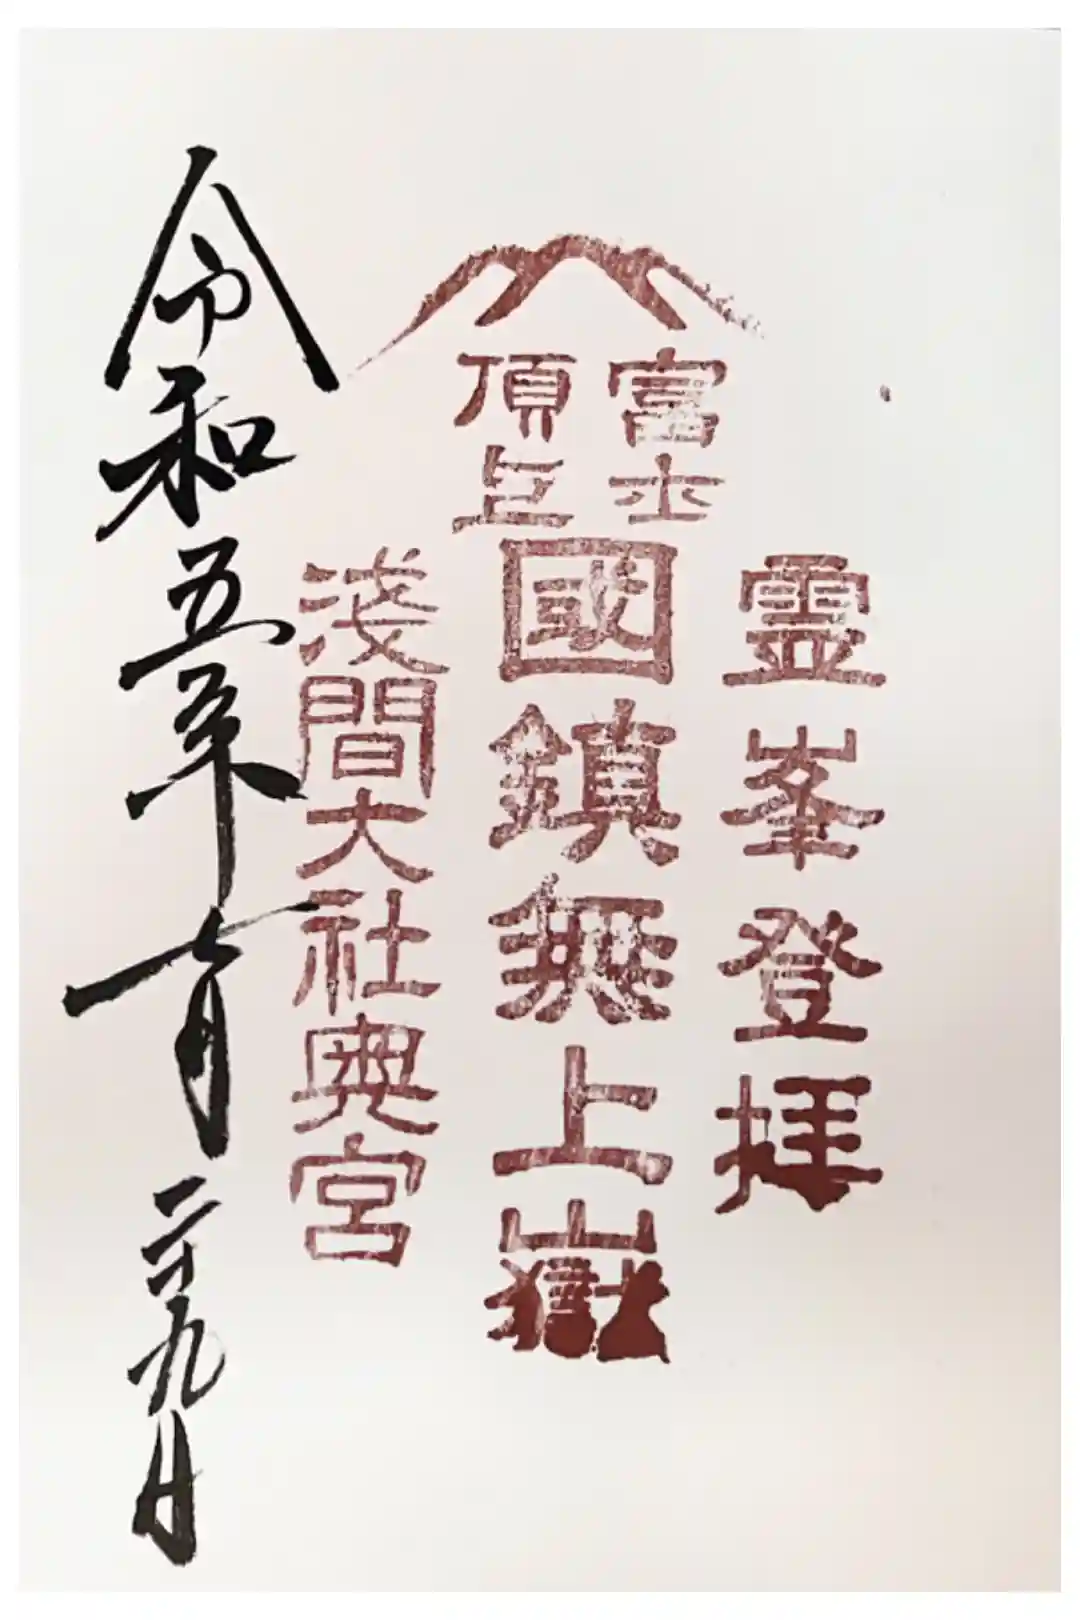 霊峯登拝
富士
頂上
國鎮無上嶽
浅間大社奥宮
令和五年七月二十九日